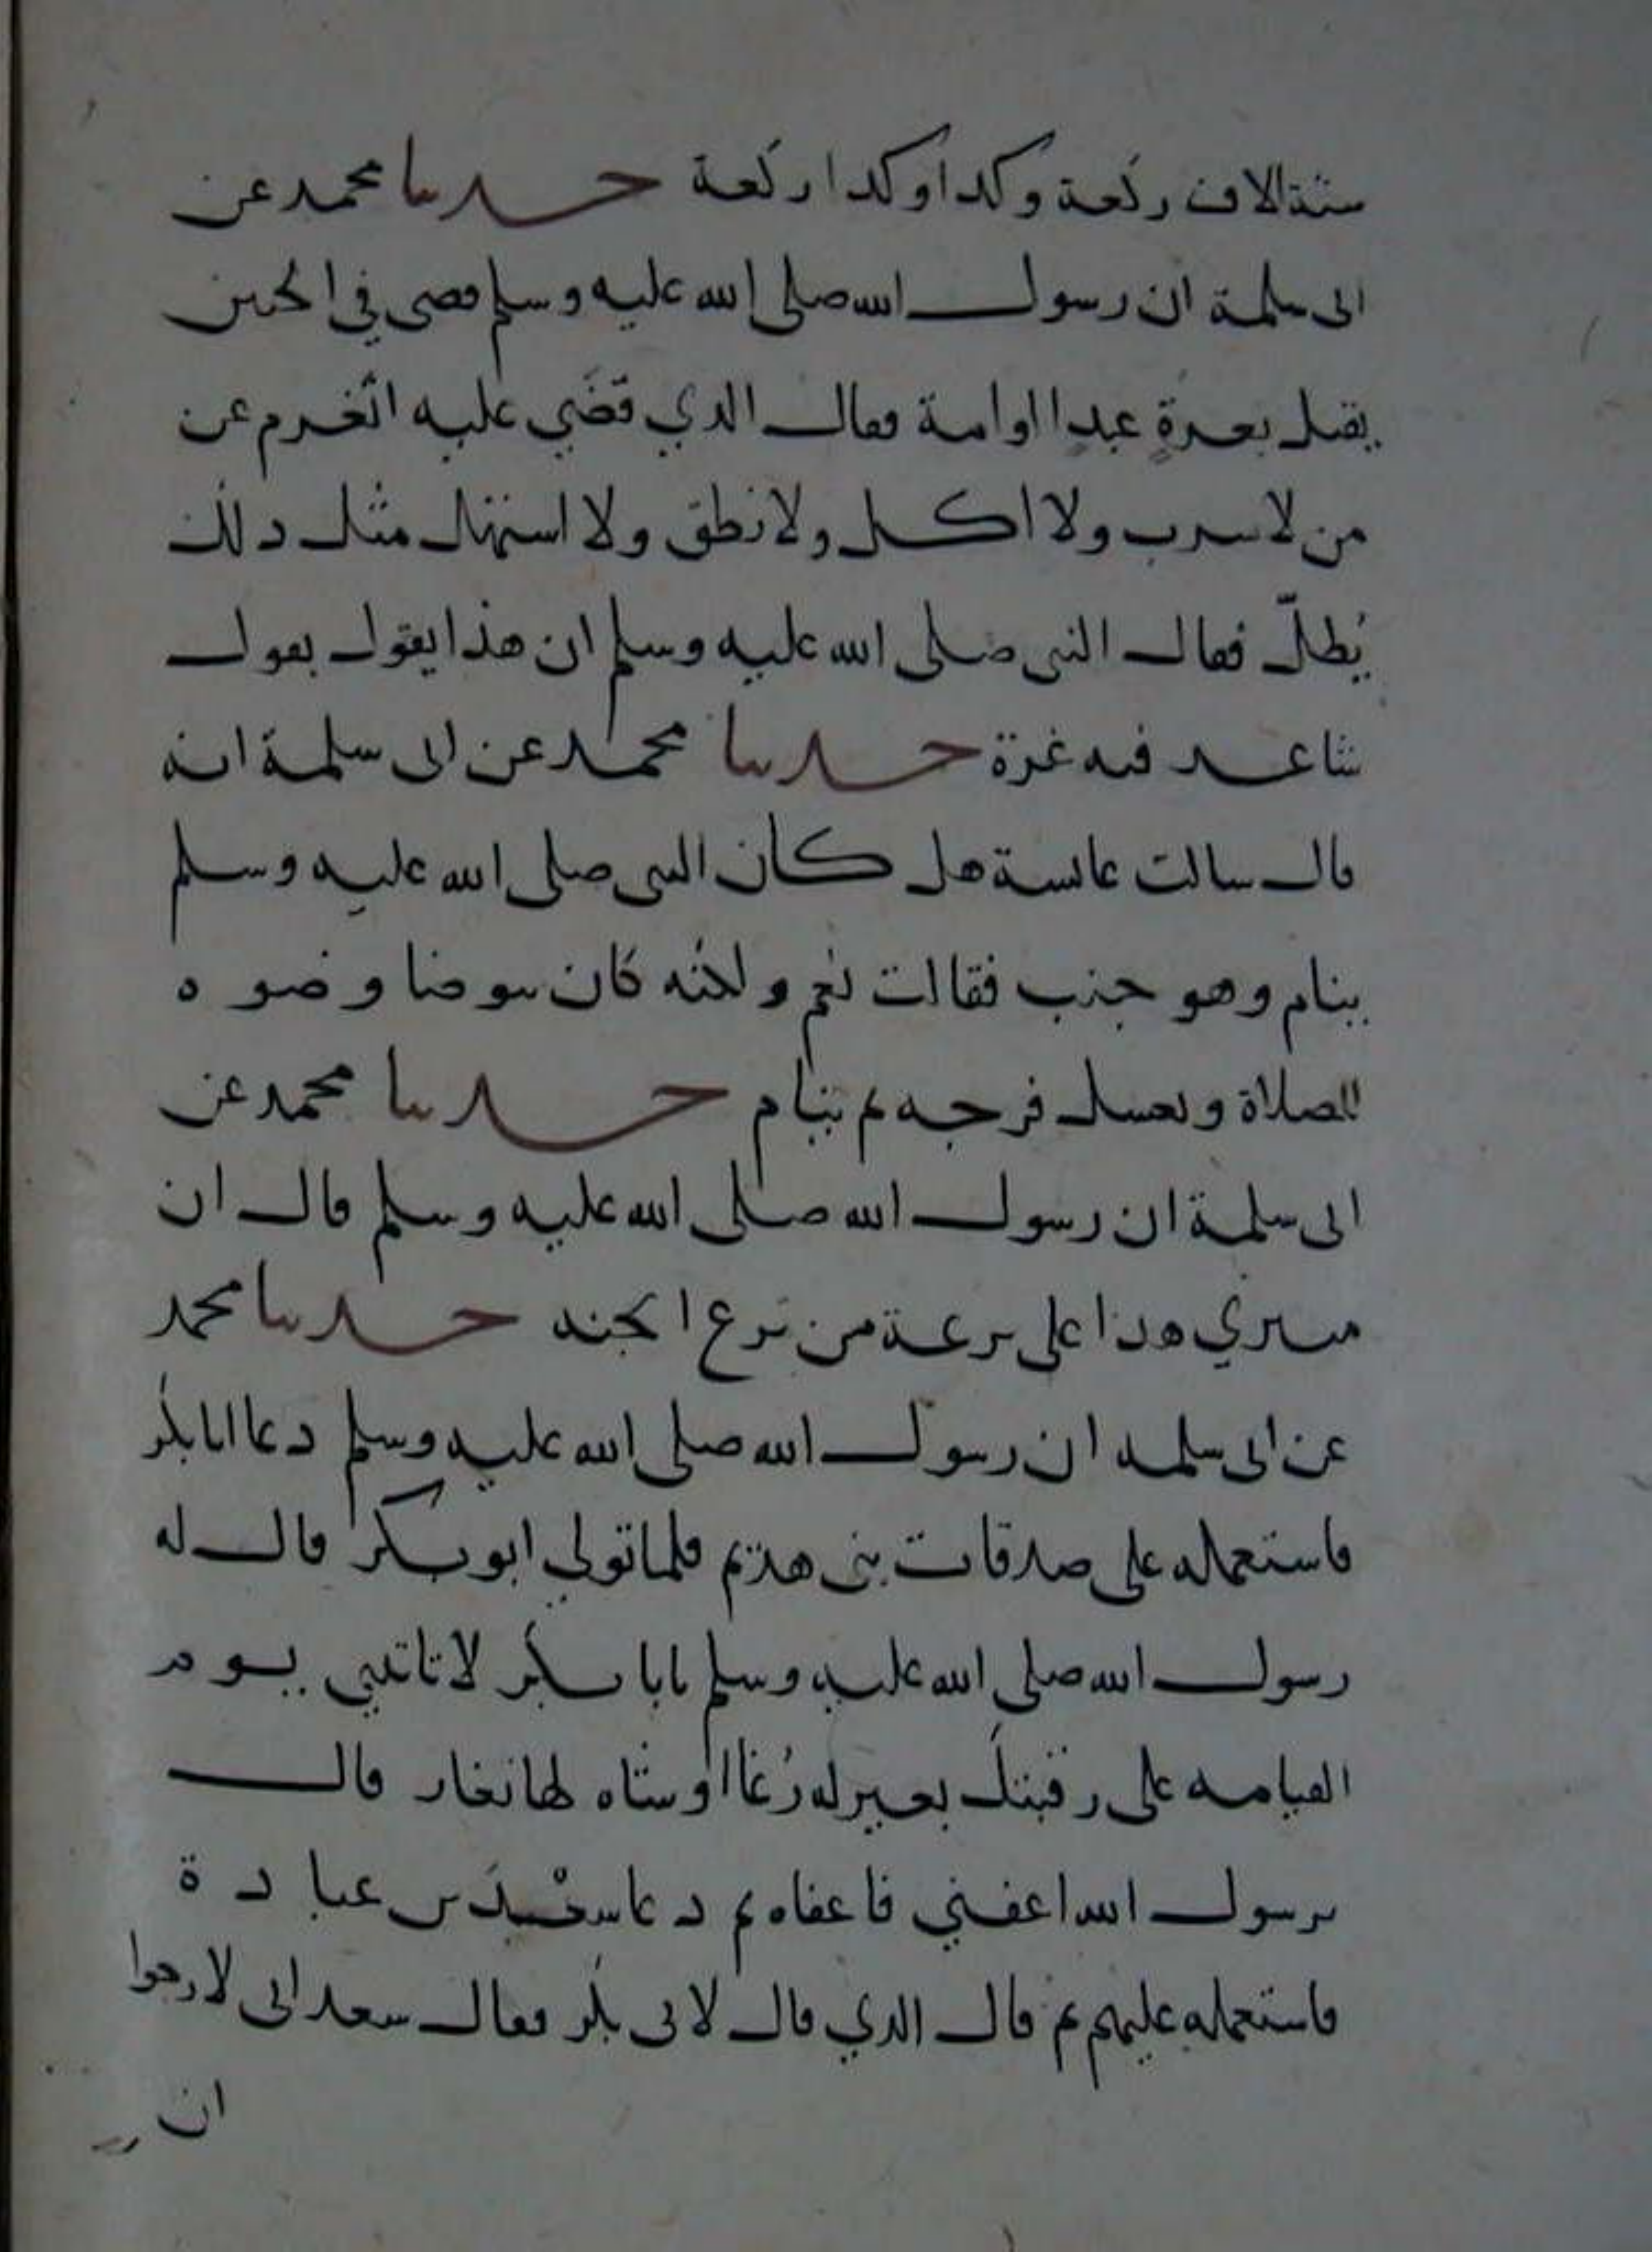 ستة الاف ركعة وكدا وكدا ركعة حدثنا محمد عن
ابى سلمة ان رسول الله صلى الله عليه وسلم قضى في الجنين
يقتل بعرة عبدا او امة فقال الدي قضي عليه اتغرم عن
من لا شرب ولا اكل ولا نطق ولا استهل مثل دلك
يُطلّ فقال النبى صلى الله عليه وسلم ان هذا يقول بقول
شاعر فيه غرة حدثنا محمد عن ابى سلمة انه
قال سالت عايشة هل كان النبى صلى الله عليه وسلم
ينام وهو جنب فقالت نعم ولكنه كان يتوضا وضوه
للصلاة ويغسل فرجه ثم ينام حدثنا محمد عن
ابى سلمة ان رسول الله صلى الله عليه وسلم قال ان
منبري هذا على ترعة من ترع الجنه حدثنا محمد
عن ابى سلمه ان رسول الله صلى الله عليه وسلم دعا ابا بكر
فاستعمله على صدقات بنى هديم فلما تولي ابو بكر قال له
رسول الله صلى الله عليه وسلم يابا بكر لا تاتيني يوم
القيامه على رقبتك بعير له رُغا او شاه لها ثغار قال
يرسول الله اعفني فاعفاه ثم دعا سعد بن عبادة
فاستعمله عليهم ثم قال الدي قال لابى بكر فقال سعد انى لارجوا
ان